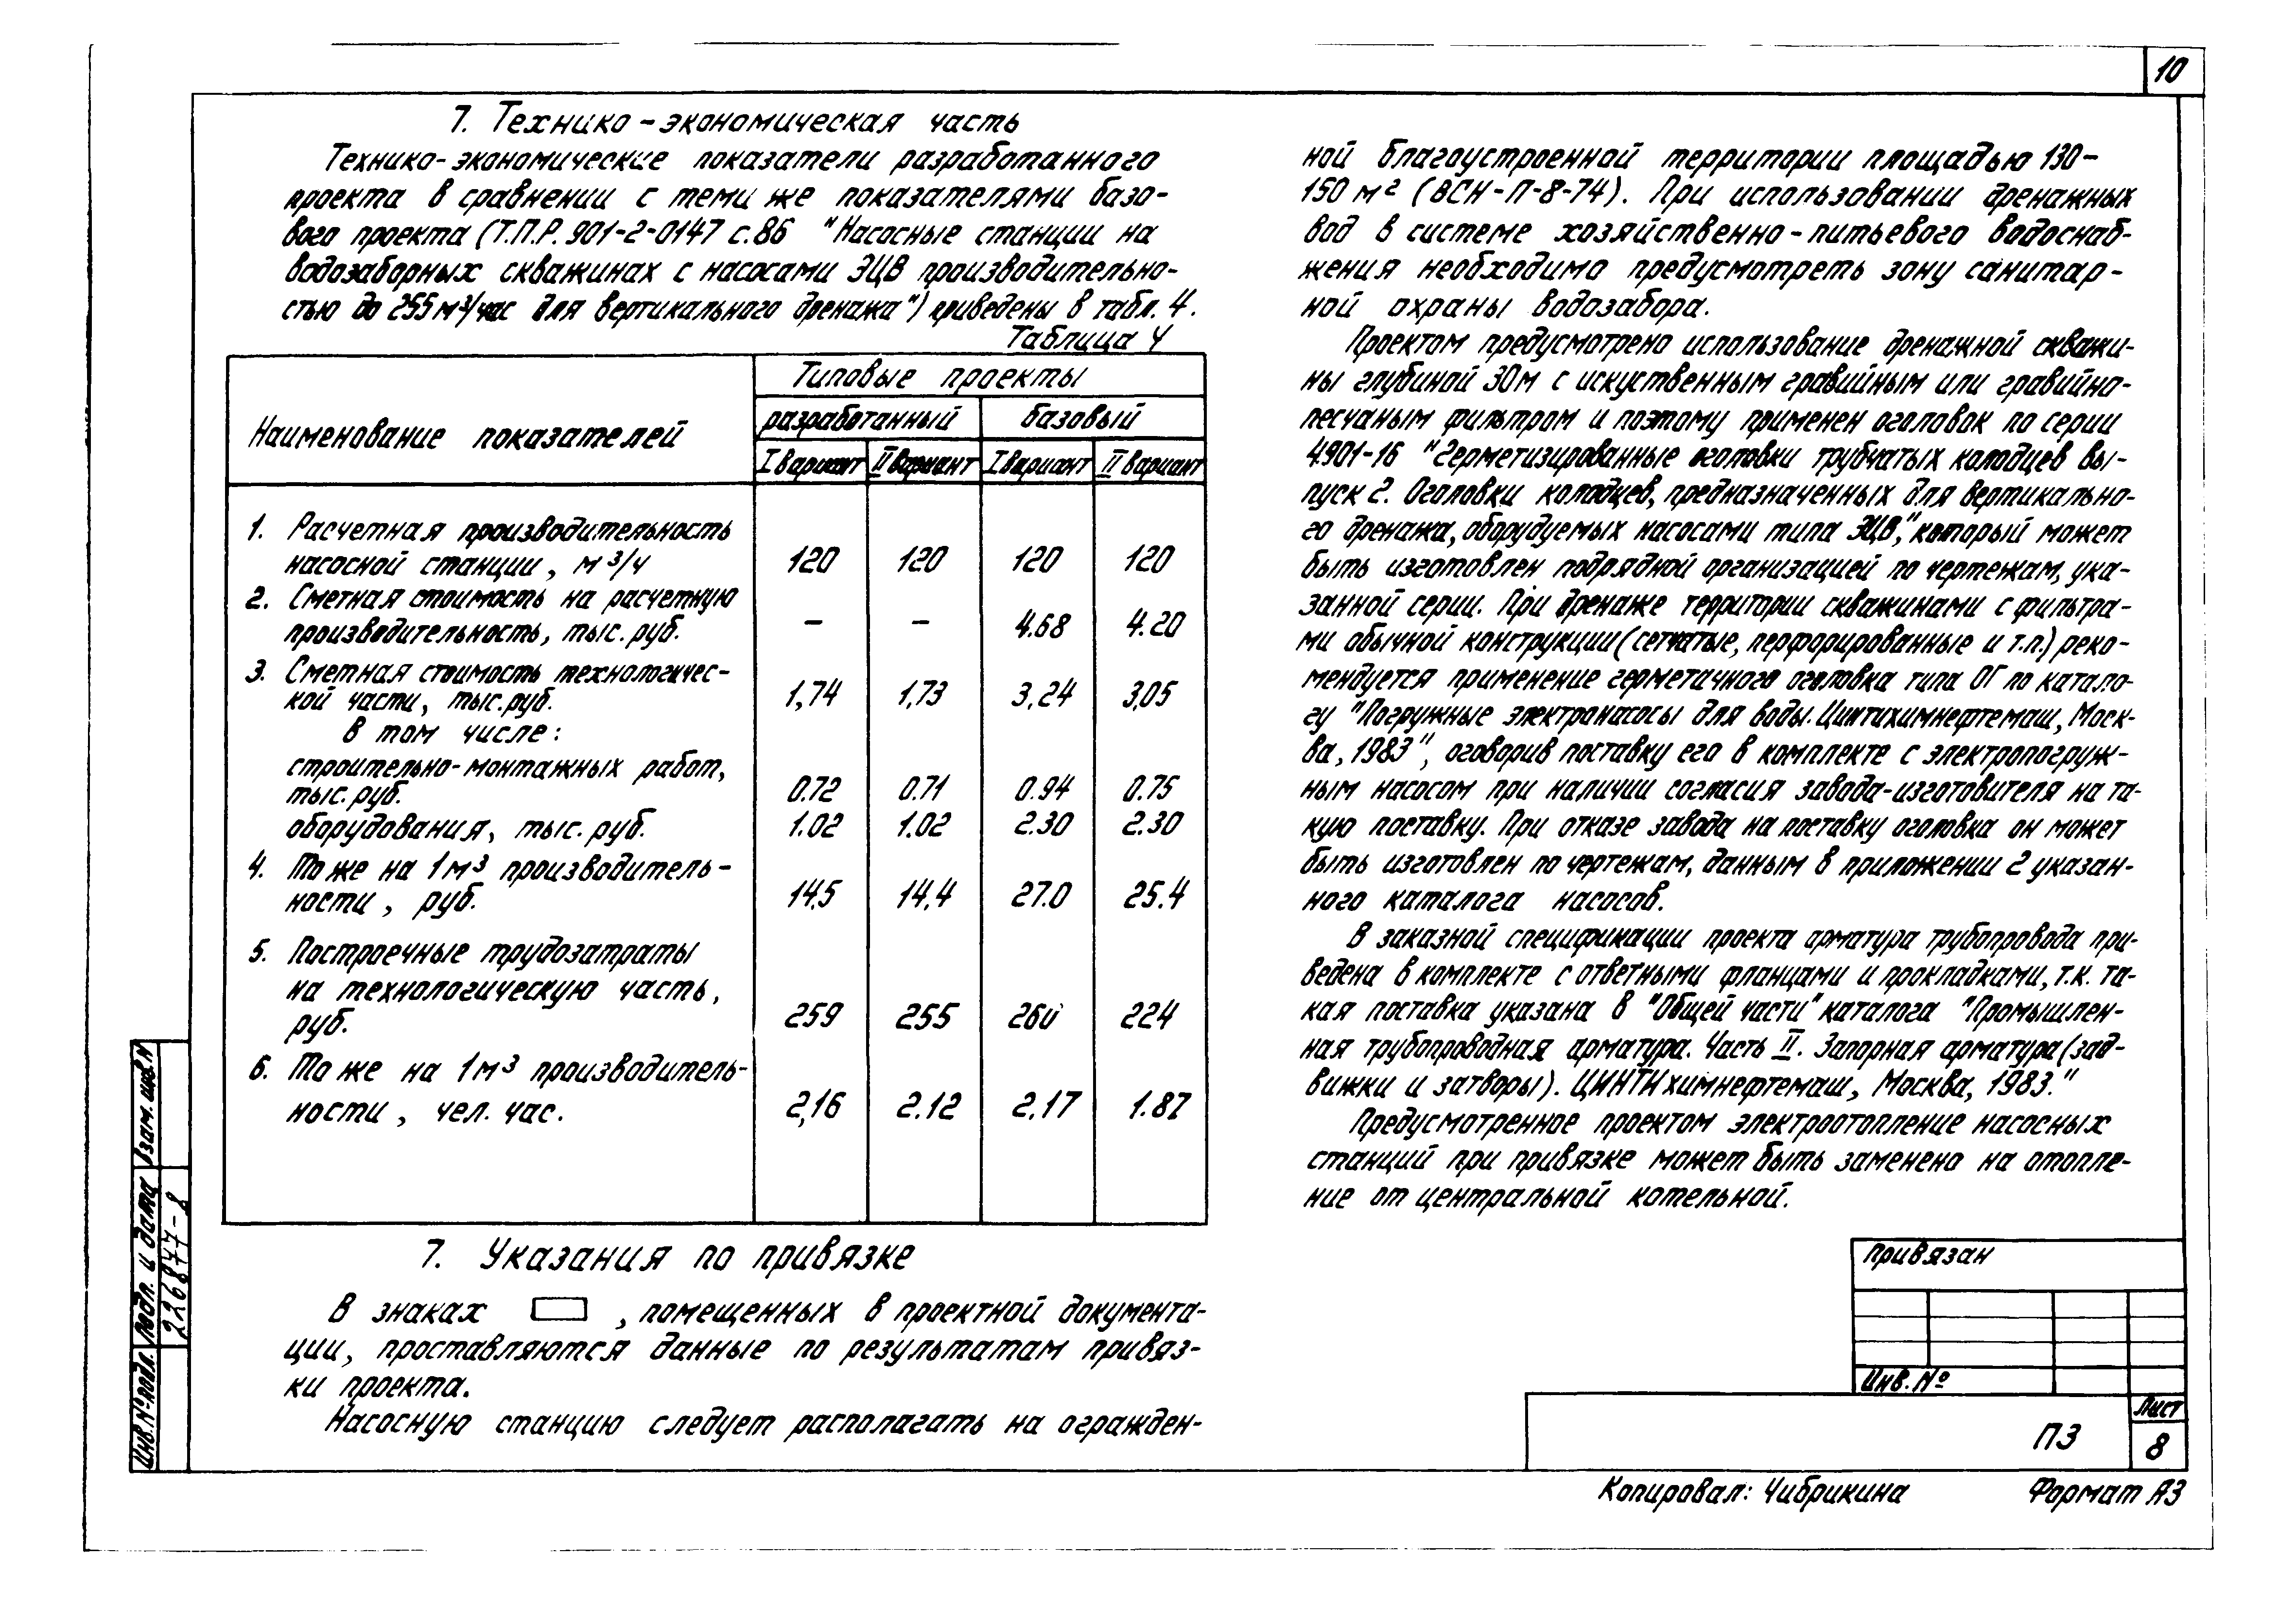 10
7. Технико-экономическая часть
Технико-экономические показатели разработанного
проекта в сравнении с теми же показателями базо-
вого проекта (Т.П.Р. 901-2-0147 с.86 "Насосные станции на
водозаборных скважинах с насосами ЭЦВ производительно-
стью до 255 м³/час для вертикального дренажа") приведены в табл. 4.
Таблица 4
Наименование показателей
Типовые проекты
разработанный базовый
I вариант II вариант I вариант II вариант
1. Расчетная производительность
насосной станции, м³/ч 120 120 120 120
2. Сметная стоимость на расчетную
производительность, тыс. руб. – – 4.68 4.20
3. Сметная стоимость технологичес-
кой части, тыс. руб. 1,74 1,73 3,24 3,05
в том числе:
строительно-монтажных работ,
тыс. руб. 0.72 0.71 0.94 0.75
оборудования, тыс. руб. 1.02 1.02 2.30 2.30
4. То же на 1 м³ производитель-
ности, руб. 14,5 14,4 27.0 25.4
5. Построечные трудозатраты
на технологическую часть,
руб. 259 255 260 224
6. То же на 1 м³ производитель-
ности, чел. час. 2,16 2.12 2,17 1.87
7. Указания по привязке
В знаках , помещенных в проектной документа-
ции, проставляются данные по результатам привяз-
ки проекта.
Насосную станцию следует располагать на огражден-
ной благоустроенной территории площадью 130-
150 м² (ВСН-П-8-74). При использовании дренажных
вод в системе хозяйственно-питьевого водоснаб-
жения необходимо предусмотреть зону санитар-
ной охраны водозабора.
Проектом предусмотрено использование дренажной скважи-
ны глубиной 30м с искуственным гравийным или гравийно-
песчаным фильтром и поэтому применен оголовок по серии
4.901-16 "Герметизированные оголовки трубчатых колодцев вы-
пуск 2. Оголовки колодцев, предназначенных для вертикально-
го дренажа, оборудуемых насосами типа ЭЦВ", который может
быть изготовлен подрядной организацией по чертежам, ука-
занной серии. При дренаже территории скважинами с фильтра-
ми обычной конструкции (сетчатые, перфорированные и т.п.) реко-
мендуется применение герметичного оголовка типа ОГ по катало-
гу "Погружные электронасосы для воды. Цинтихимнефтемаш, Моск-
ва, 1983", оговорив поставку его в комплекте с электропогруж-
ным насосом при наличии согласия завода-изготовителя на та-
кую поставку. При отказе завода на поставку оголовка он может
быть изготовлен по чертежам, данным в приложении 2 указан-
ного каталога насосов.
В заказной спецификации проекта арматура трубопровода при-
ведена в комплекте с ответными фланцами и прокладками, т.к. та-
кая поставка указана в "Общей части" каталога "Промышлен-
ная трубопроводная арматура. Часть II. Запорная арматура (зад-
вижки и затворы). ЦИНТИхимнефтемаш, Москва, 1983."
Предусмотренное проектом электроотопление насосных
станций при привязке может быть заменено на отопле-
ние от центральной котельной.
Привязан
Инв. №
ПЗ
Лист
8
Копировал: Чибрикина Формат А3
Инв.№ подл. Подп. и дата Взам. инв.N
22687-8